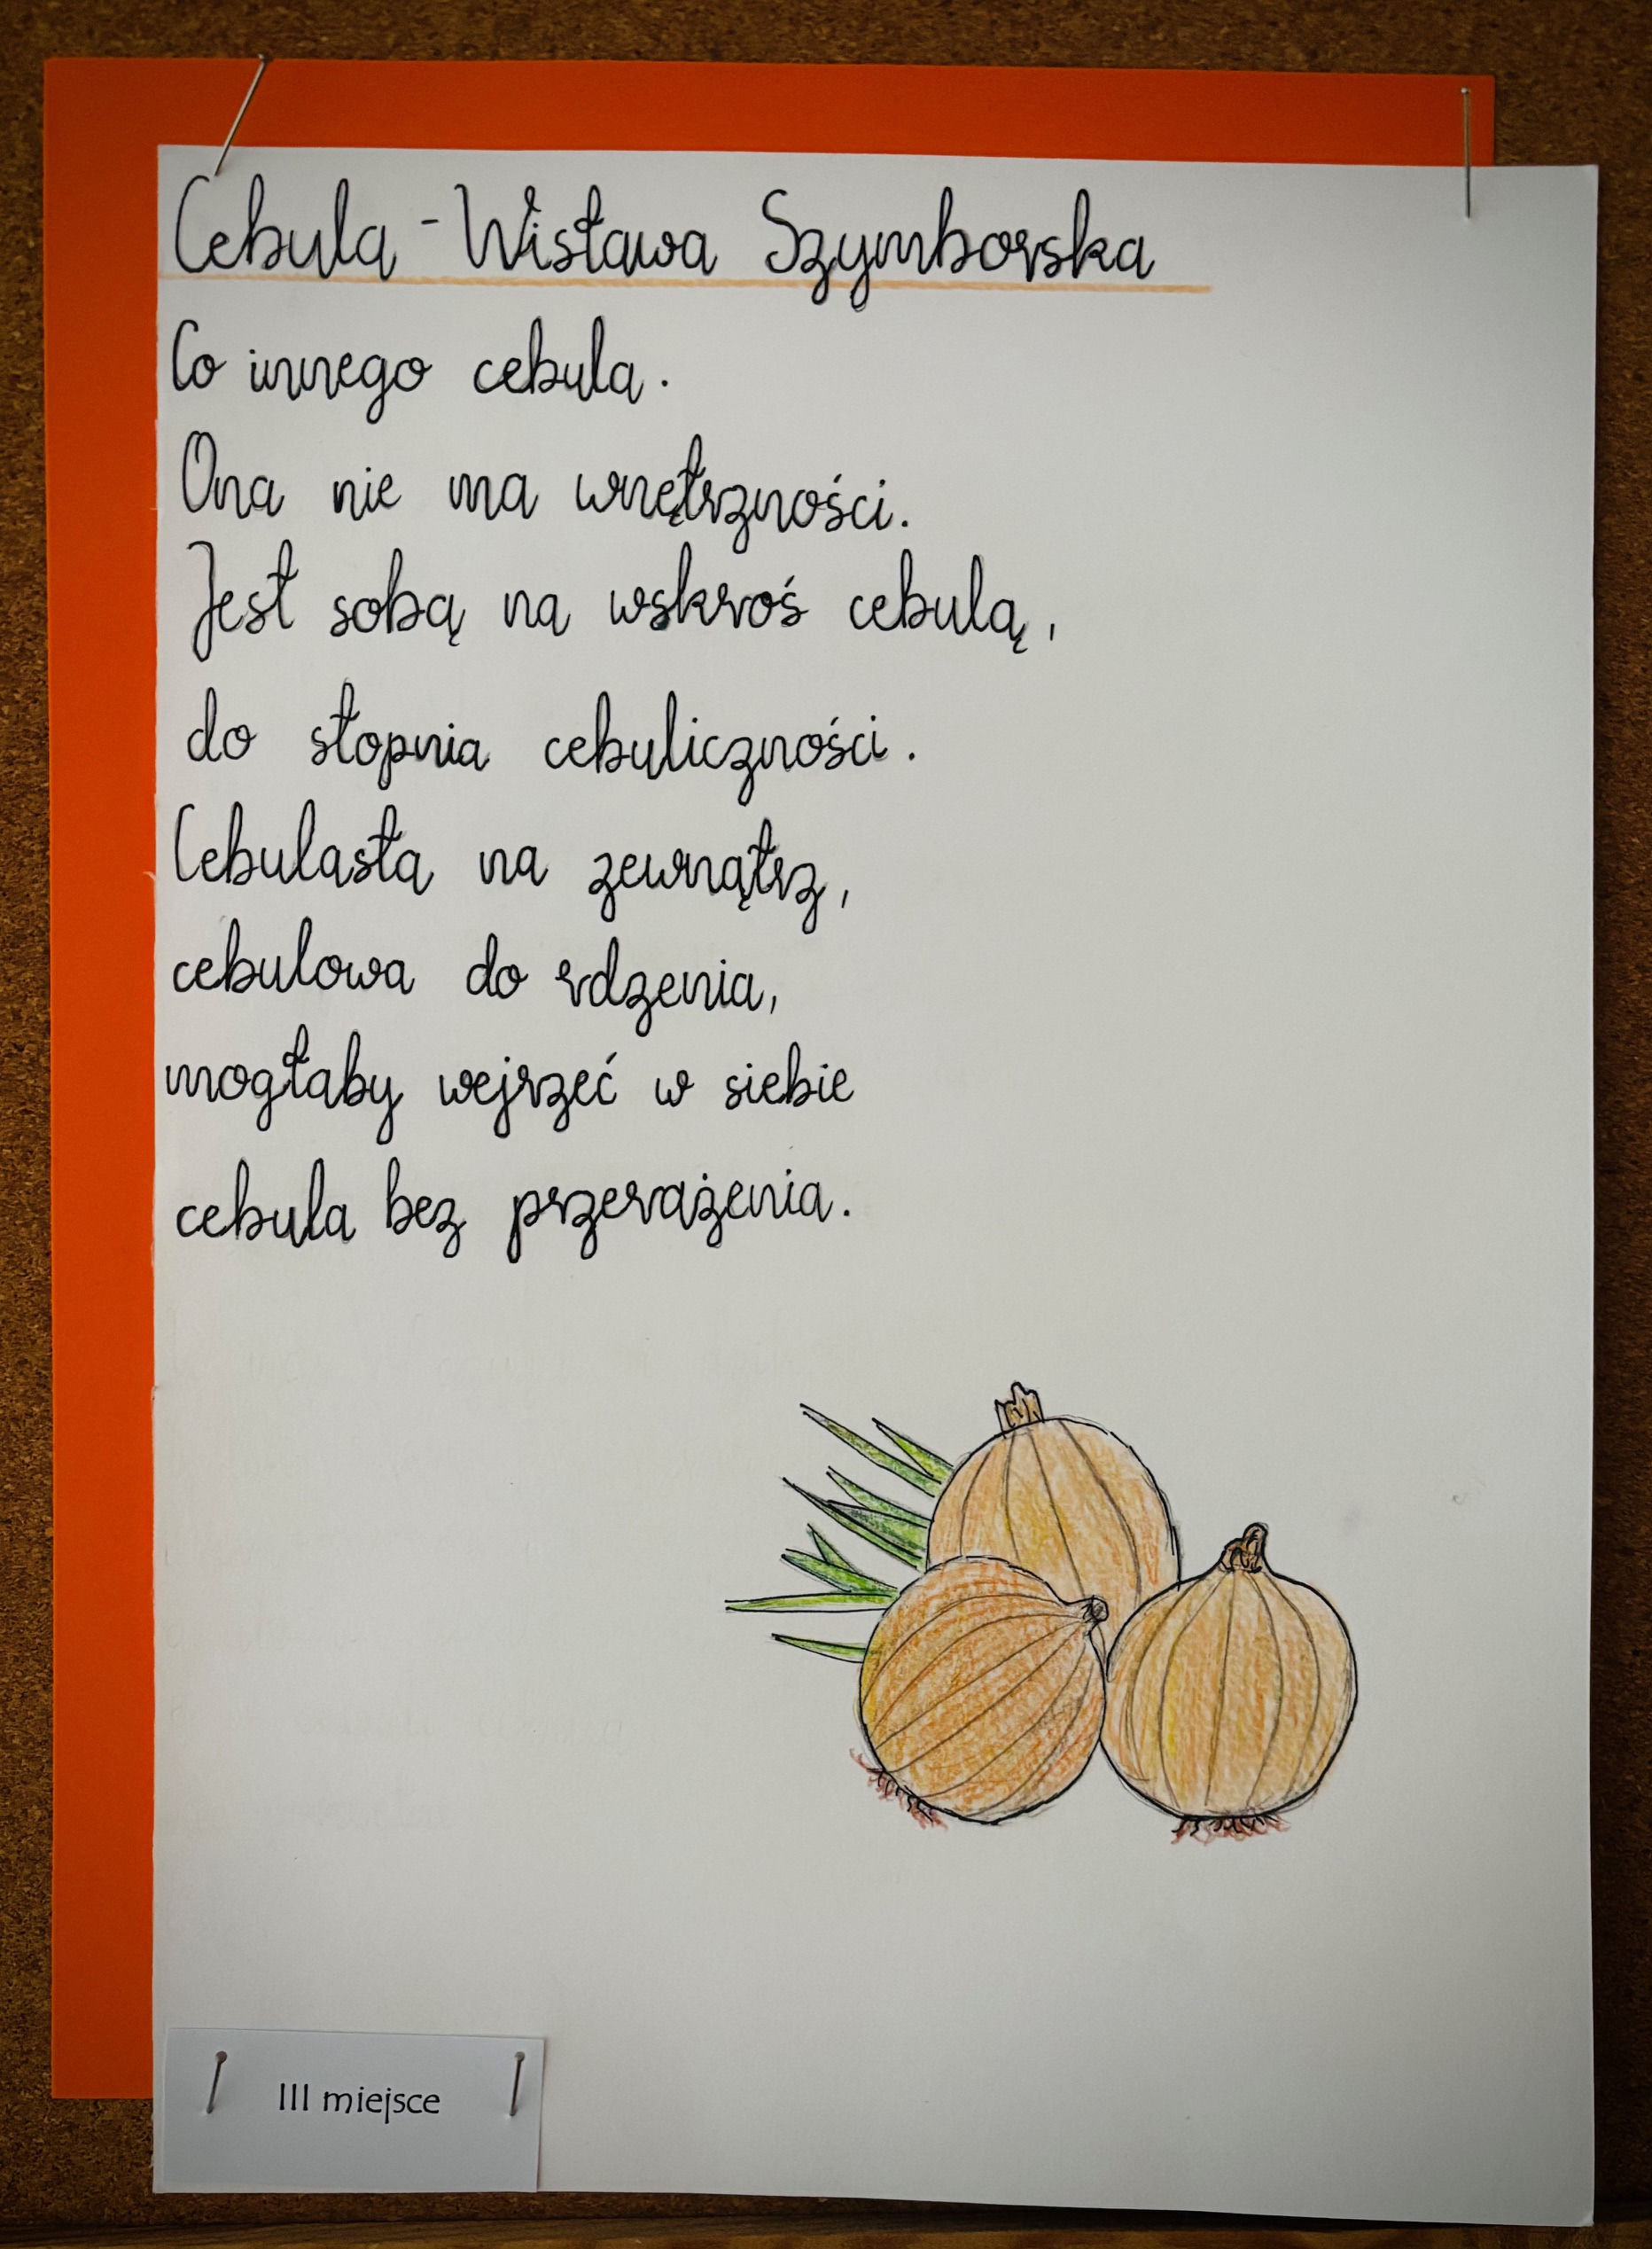 Cebula - Wisława Szymborska
Co innego cebula.
Ona nie ma wnętrzności.
Jest sobą na wskroś cebulą,
do stopnia cebuliczności.
Cebulasta na zewnątrz,
cebulowa do rdzenia,
mogłaby wejrzeć w siebie
cebula bez przerażenia.
III miejsce